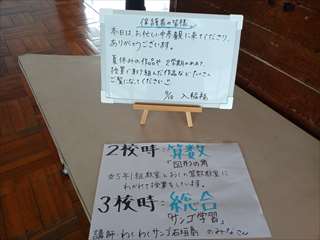 保護者の皆様
本日は、お忙しい中参観に来てくださり、
ありがとうございます。
夏休みの作品や、2学期の
授業で取り組んだ作品など
ご覧になってください。
2校時：算数
「図形の角」
☆5年1組教室と
わかれて授業をしています。
3校時：総合
「サンゴ学習」
講師：わくわくサンゴ石垣島のみなさん